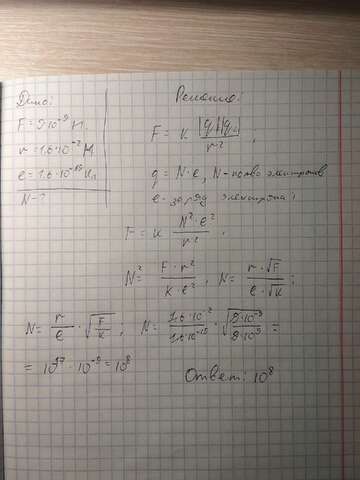 Дано:
F = 9·10⁻⁹ Н.
r = 1,6·10⁻² М
e = 1.6·10⁻¹⁹ Кл
N - ?
Решение:
F = k |q||q| / r² ;
q = N·e, N - кол-во электронов
e - заряд электрона;
F = k N²·e² / r² .
N² = F·r² / k·e² , N = r·√F / e·√k ;
N = r / e · √F / k ; N = 1.6·10⁻² / 1.6·10⁻¹⁹ · √9·10⁻⁹ / 9·10⁹ =
= 10¹⁷ · 10⁻⁹ = 10⁸
Ответ: 10⁸